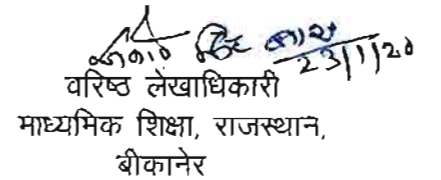 23/1/20
वरिष्ठ लेखाधिकारी
माध्यमिक शिक्षा, राजस्थान,
बीकानेर